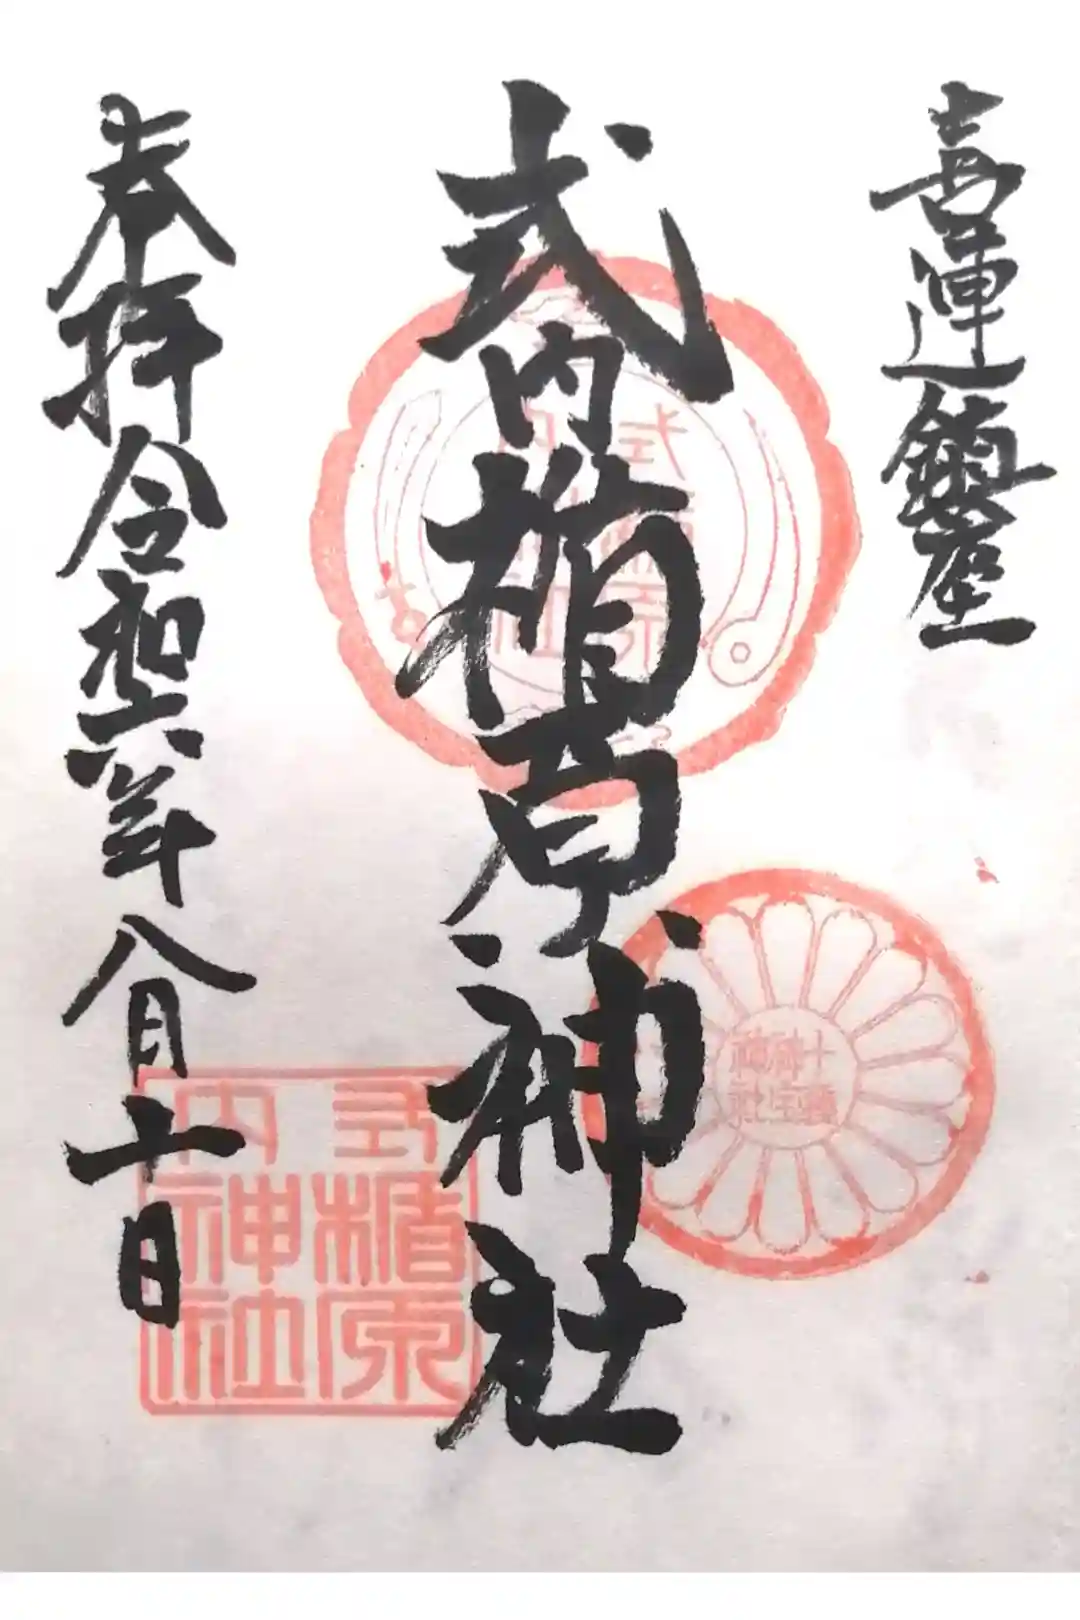 喜連鎮座
式内楯原神社
奉拝令和六年八月十日
式内
楯原
神社
式内楯原神社